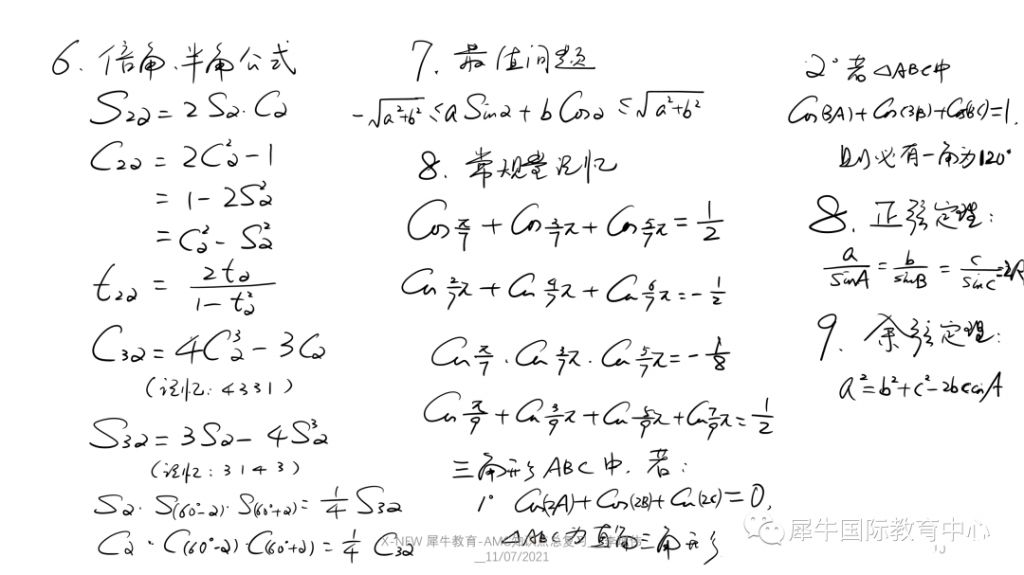 6. 倍角.半角公式
S2α = 2Sα·Cα
C2α = 2C²α - 1
= 1 - 2S²α
= C²α - S²α
t2α = 2tα / (1 - t²α)
C3α = 4C³α - 3Cα
(记忆: 4331)
S3α = 3Sα - 4S³α
(记忆: 3143)
Sα·S(60°-α)·S(60°+α) = 1/4 S3α
Cα·C(60°-α)·C(60°+α) = 1/4 C3α
7. 最值问题
-√(a²+b²) ≤ a Sinα + b Cosα ≤ √(a²+b²)
8. 常规量记忆
Cos π/7 + Cos 3/7π + Cos 5/7π = 1/2
Cos 2/7π + Cos 4/7π + Cos 6/7π = -1/2
Cos π/7 · Cos 3/7π · Cos 5/7π = -1/8
Cos π/9 + Cos 3/9π + Cos 5/9π + Cos 7/9π = 1/2
三角形ABC中. 若:
1° Cos(2A)+Cos(2B)+Cos(2C)=0,
△ABC为直角三角形
2° 若△ABC中
Cos(3A)+Cos(3B)+Cos(3C)=1,
则必有一角为120°
8. 正弦定理:
a/sinA = b/sinB = c/sinC = 2R
9. 余弦定理:
a²=b²+c²-2bccosA
X-NEW 犀牛教育-AM
11/07/2021
犀牛国际教育中心